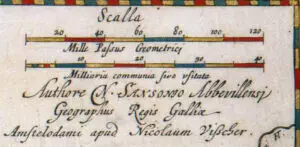 Scalla
20 40 60 80 100 120
Mille Passus Geometrici
10 20 30 40
Milliaria communia sive usitata
Authore N. Sansonio Abbevillensi
Geographus Regis Galliæ
Amstelodami apud Nicolaum Visscher.